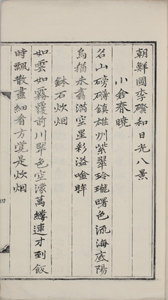 朝鮮國李礥和日光八景
小倉春曉
名山磅礴鎮雄州紫翠玲瓏曙色流海底陽
烏僊未翥滿空星彩溢
鉢石炊烟
如雲如霧護前川翠色空濛萬縷連才到飯
時飄散盡細看方這是炊烟
四